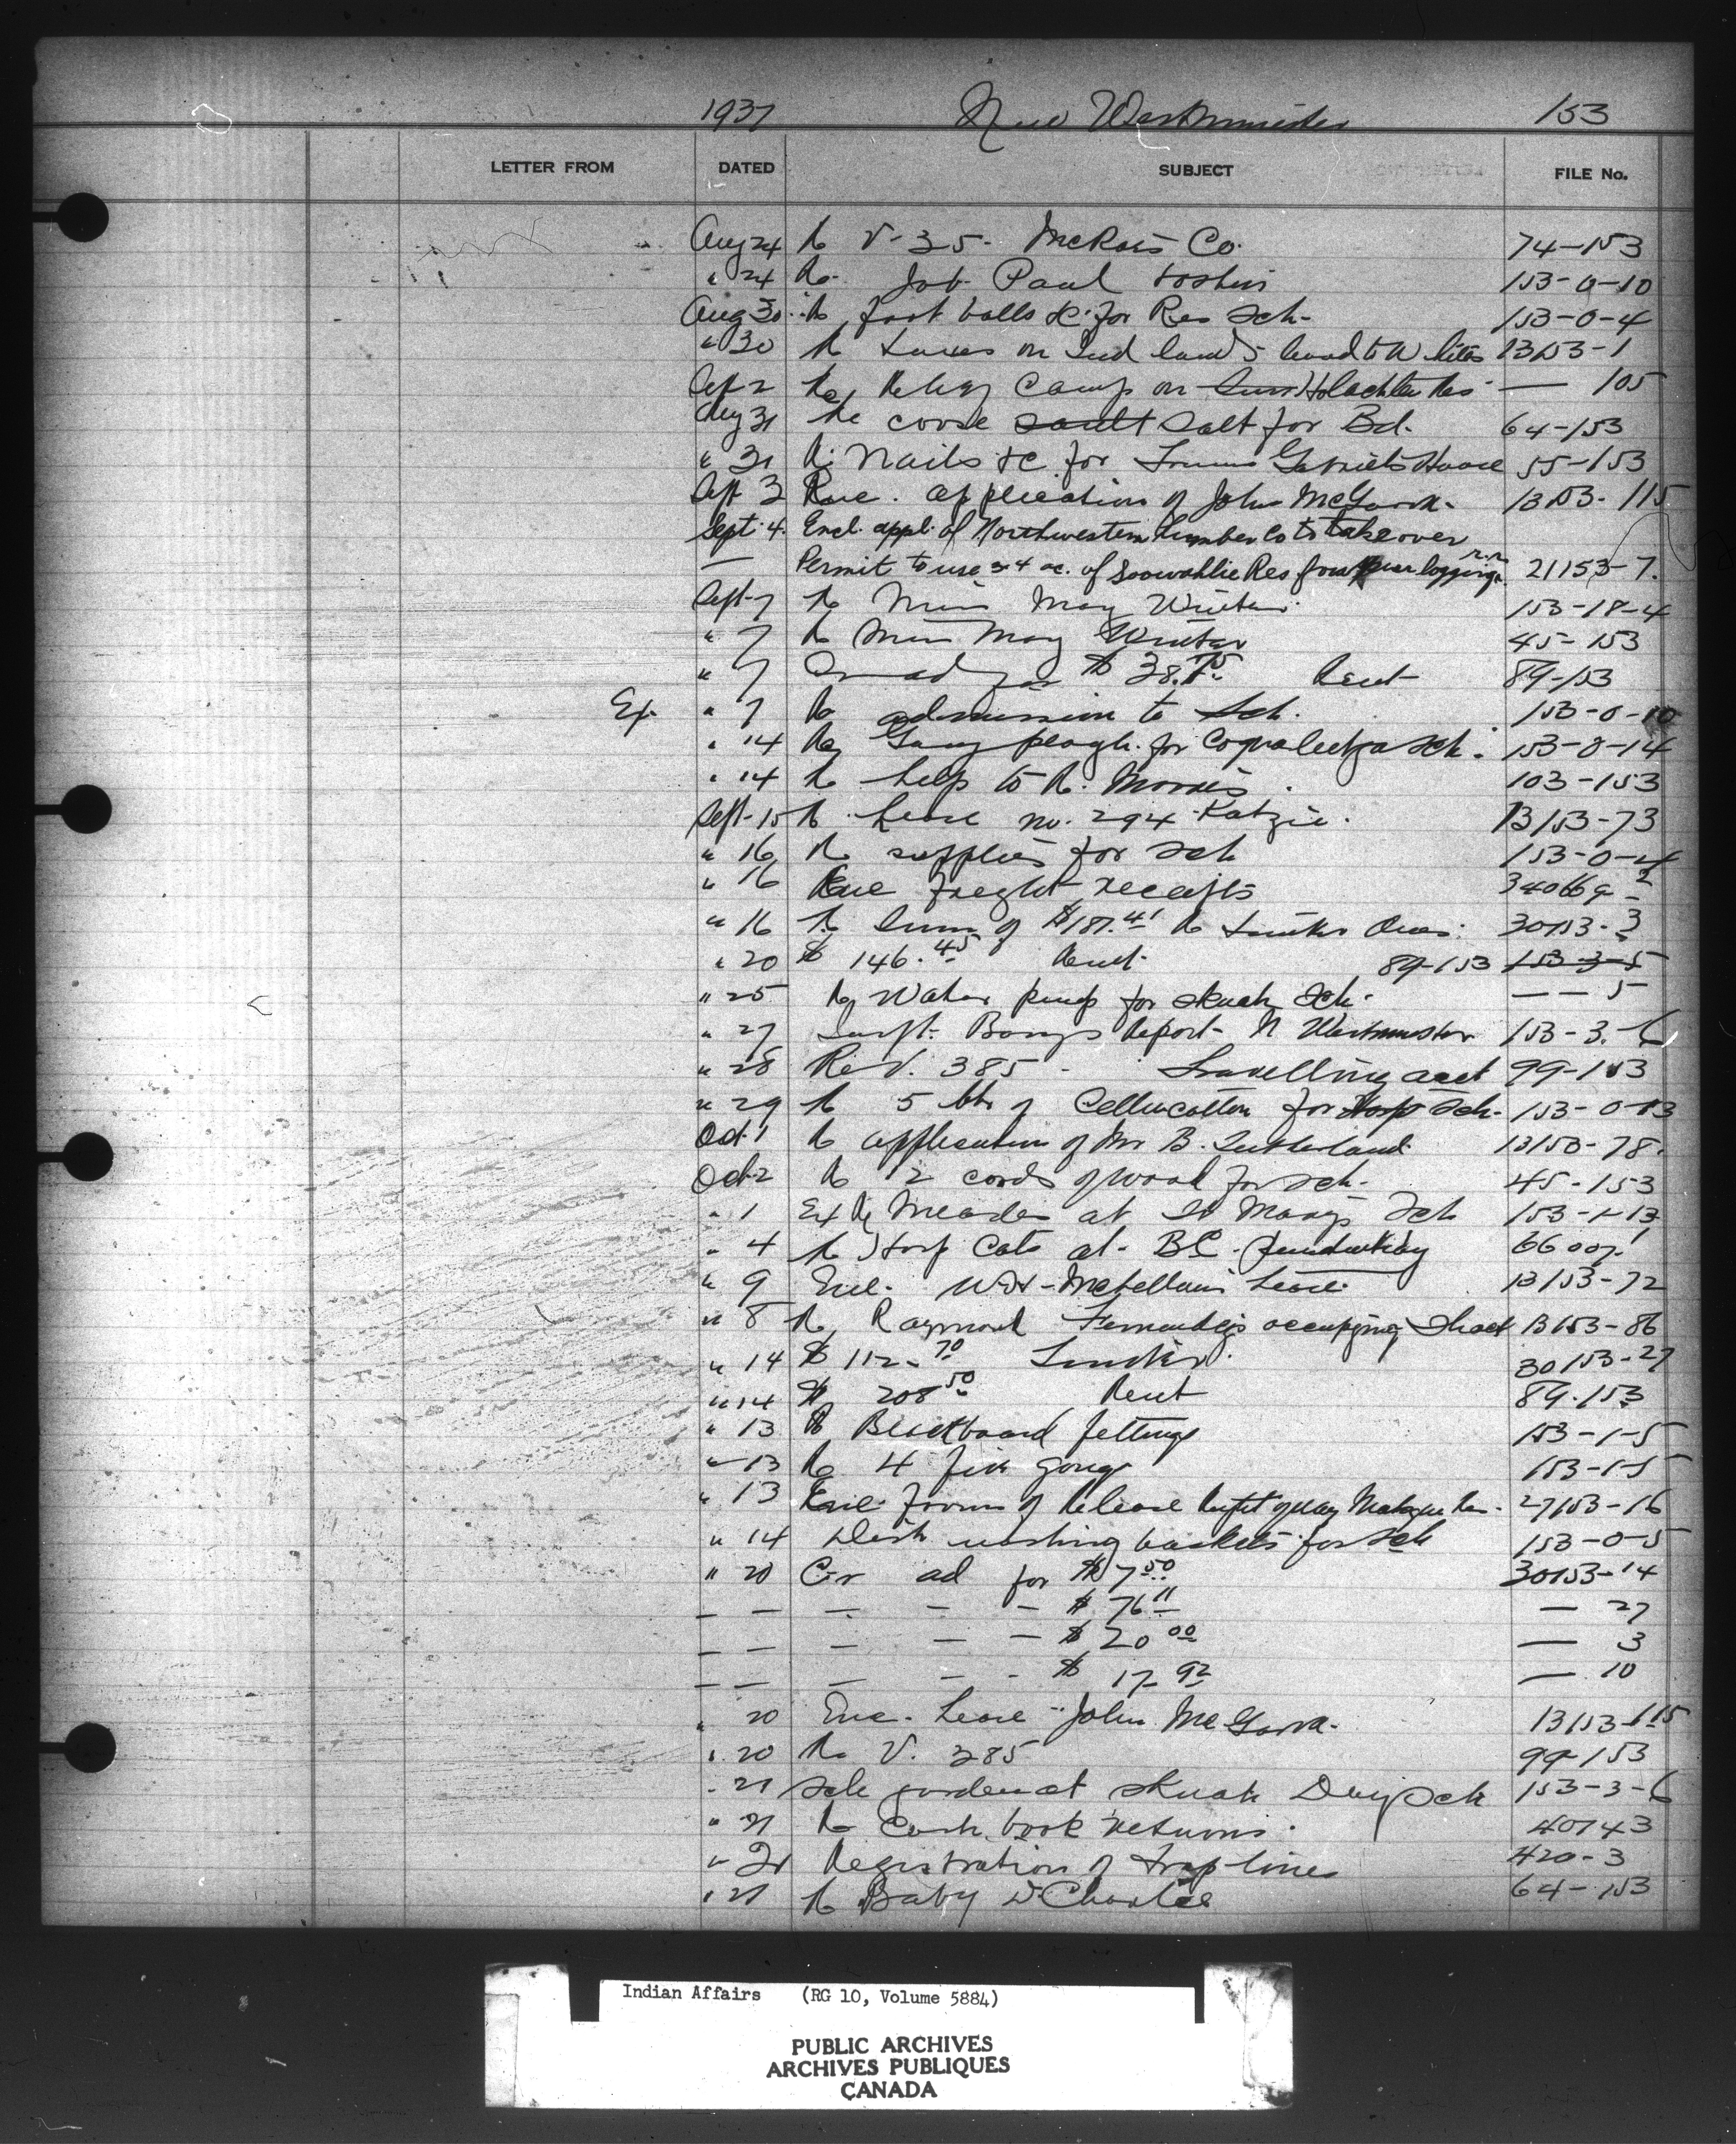 1937 New Westminster 153
LETTER FROM DATED SUBJECT FILE No.
Aug 24 Re V-35- Co. 74-153
" 24 Re Job Paul 153-0-10
Aug 30 Re foot balls &c for Res Sch- 153-0-4
" 30 Re Taxes on Ind lands 13153-1
Sept 2 Re Camp on — 105
Aug 31 Re salt for Bd. 64-153
" 31 Re Nails &c for House 55-153
Sept 3 application of John 13153-115
Sept 4. Encl. appl. of Northwestern Lumber Co to take over
— Permit to use 34 ac. of Soowahlie Res logging r.r. 21153-7.
Sept-7 Re Miss May 153-18-4
" 7 Re Miss May 45-153
" 7 $38.75 Rent 89-153
Ex. " 7 Re admission to Sch. 153-0-10
" 14 Re plough for Coqualeetza Sch. 153-0-14
" 14 Re help to R. Morris. 103-153
Sept-15 Re Lease no. 294 Katzie. 13153-73
" 16 Re supplies for Sch 153-0-4
" 16 Enc freight receipts
" 16 Re Sum of $187.41 Re Timber Dues. 30153-3
" 20 $146.45 Rent 89-153 153-3-5
" 25 Re Water pump for Skwah Sch. — — 5
" 27 Report N Westminster 153-3-6
" 28 Re V. 385 - Travelling acct 99-153
" 29 Re 5 of Cellucotton for Hosp Sch- 153-0-13
Oct 1 Re application of Mr B. Sutherland 13153-78.
Oct 2 Re 2 cords of wood for Sch- 45-153
" 1 Ex Re Measles at St Marys Sch 153-1-13
" 4 Re Hosp at BC 66007-1
" 9 Enc. McLellan's Lease 13153-72
" 8 Re Raymond occupying shack 13153-86
" 14 $112.70 Timber. 30153-27
" 14 $208.50 Rent 89-153
" 13 Re Blackboard fittings 153-1-5
" 13 Re 4 fire gongs 153-1-5
" 13 Enc. forms of Release 27153-16
" 14 Dish washing baskets for Sch 153-0-5
" 20 Cr ad for $7.50 30153-14
— — — — — $76.11 — 27
— — — — — $20.00 — 3
— — — — - $17.92 — 10
" 20 Enc. Lease - John 13153-115
" 20 Re V. 385 99-153
" 21 Sch garden at Skwah Day Sch 153-3-6
" 21 Re Cash book returns. 40143
" 21 Registration of trap lines 420-3
" 21 Re Baby D Charlie 64-153
Indian Affairs (RG 10, Volume 5884)
PUBLIC ARCHIVES
ARCHIVES PUBLIQUES
CANADA